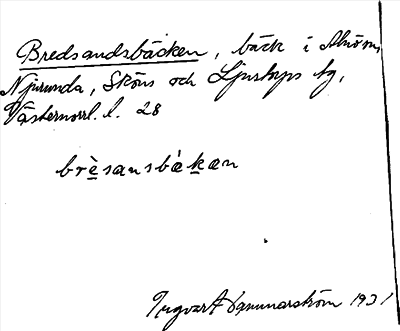 Bredsandsbäcken, bäck i Alnöns,
Njurunda, Sköns och Ljustorps tg,
Västernorrl. l. 28
brèsansbǽkæn
Ingvar Hammarström 1931